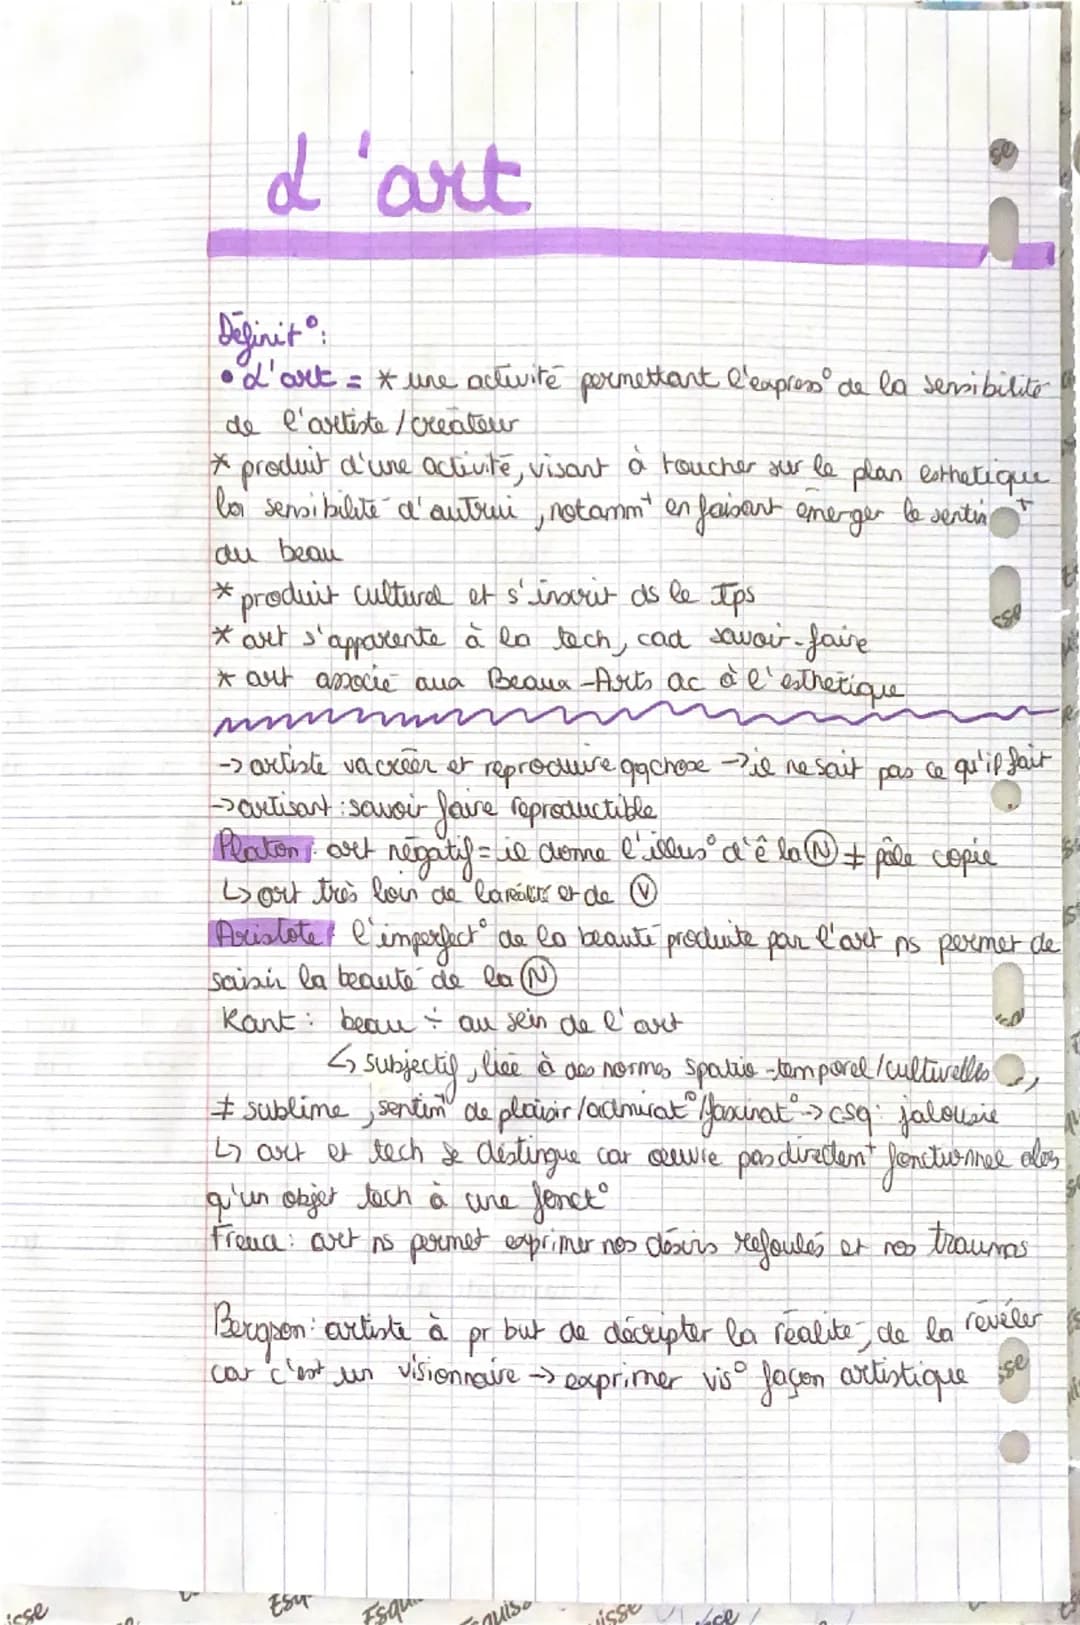 L'art
Définit°:
• L'art = * une activité permettant l'express° de la sensibilité
de l'artiste / créateur
* produit d'une activité, visant à toucher sur le plan esthétique
la sensibilité d'autrui, notamm^t en faisant émerger le sentim^t
du beau
* produit culturel et s'inscrit ds le tps
* art s'apparente à la tech, cad savoir-faire
* art associé aux Beaux-Arts ac à l'esthétique
-> artiste va créer et reproduire qqchose -> il ne sait pas ce qu'il fait
-> artisant : savoir faire reproductible
Platon : art négatif = il donne l'illus° d'ê la Ⓝ ≠ pâle copie
↳ art très loin de la réalité et de Ⓥ
Aristote : l'imperfect° de la beauté produite par l'art ns permet de
saisir la beauté de la Ⓝ
Kant : beau ÷ au sein de l'art
↳ subjectif, liée à des normes spatio-temporel/culturelles,
≠ sublime, sentim^t de plaisir/admirat°/fascinat° -> csq : jalousie
↳ art et tech se distingue car œuvre pas directem^t fonctionnel alors
qu'un objet tech à une fonct°
Freud : art ns permet exprimer nos désirs refoulés et nos traumas
Bergson : artiste à pr but de décripter la réalité, de la révéler
car c'est un visionnaire -> exprimer vis° façon artistique
se
sse
sse
isse
Esqu
Esqu
quiss
isse